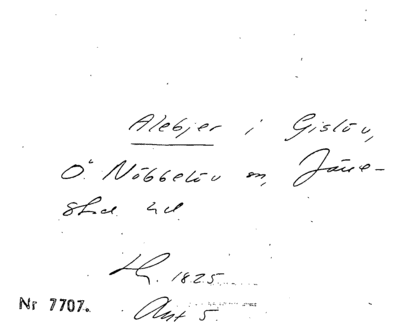 Alebjer i Gislöv,
Ö. Nöbbelöv sn, Järre-
stad hd.
Hg. 1825
Nr 7707. Akt 5.